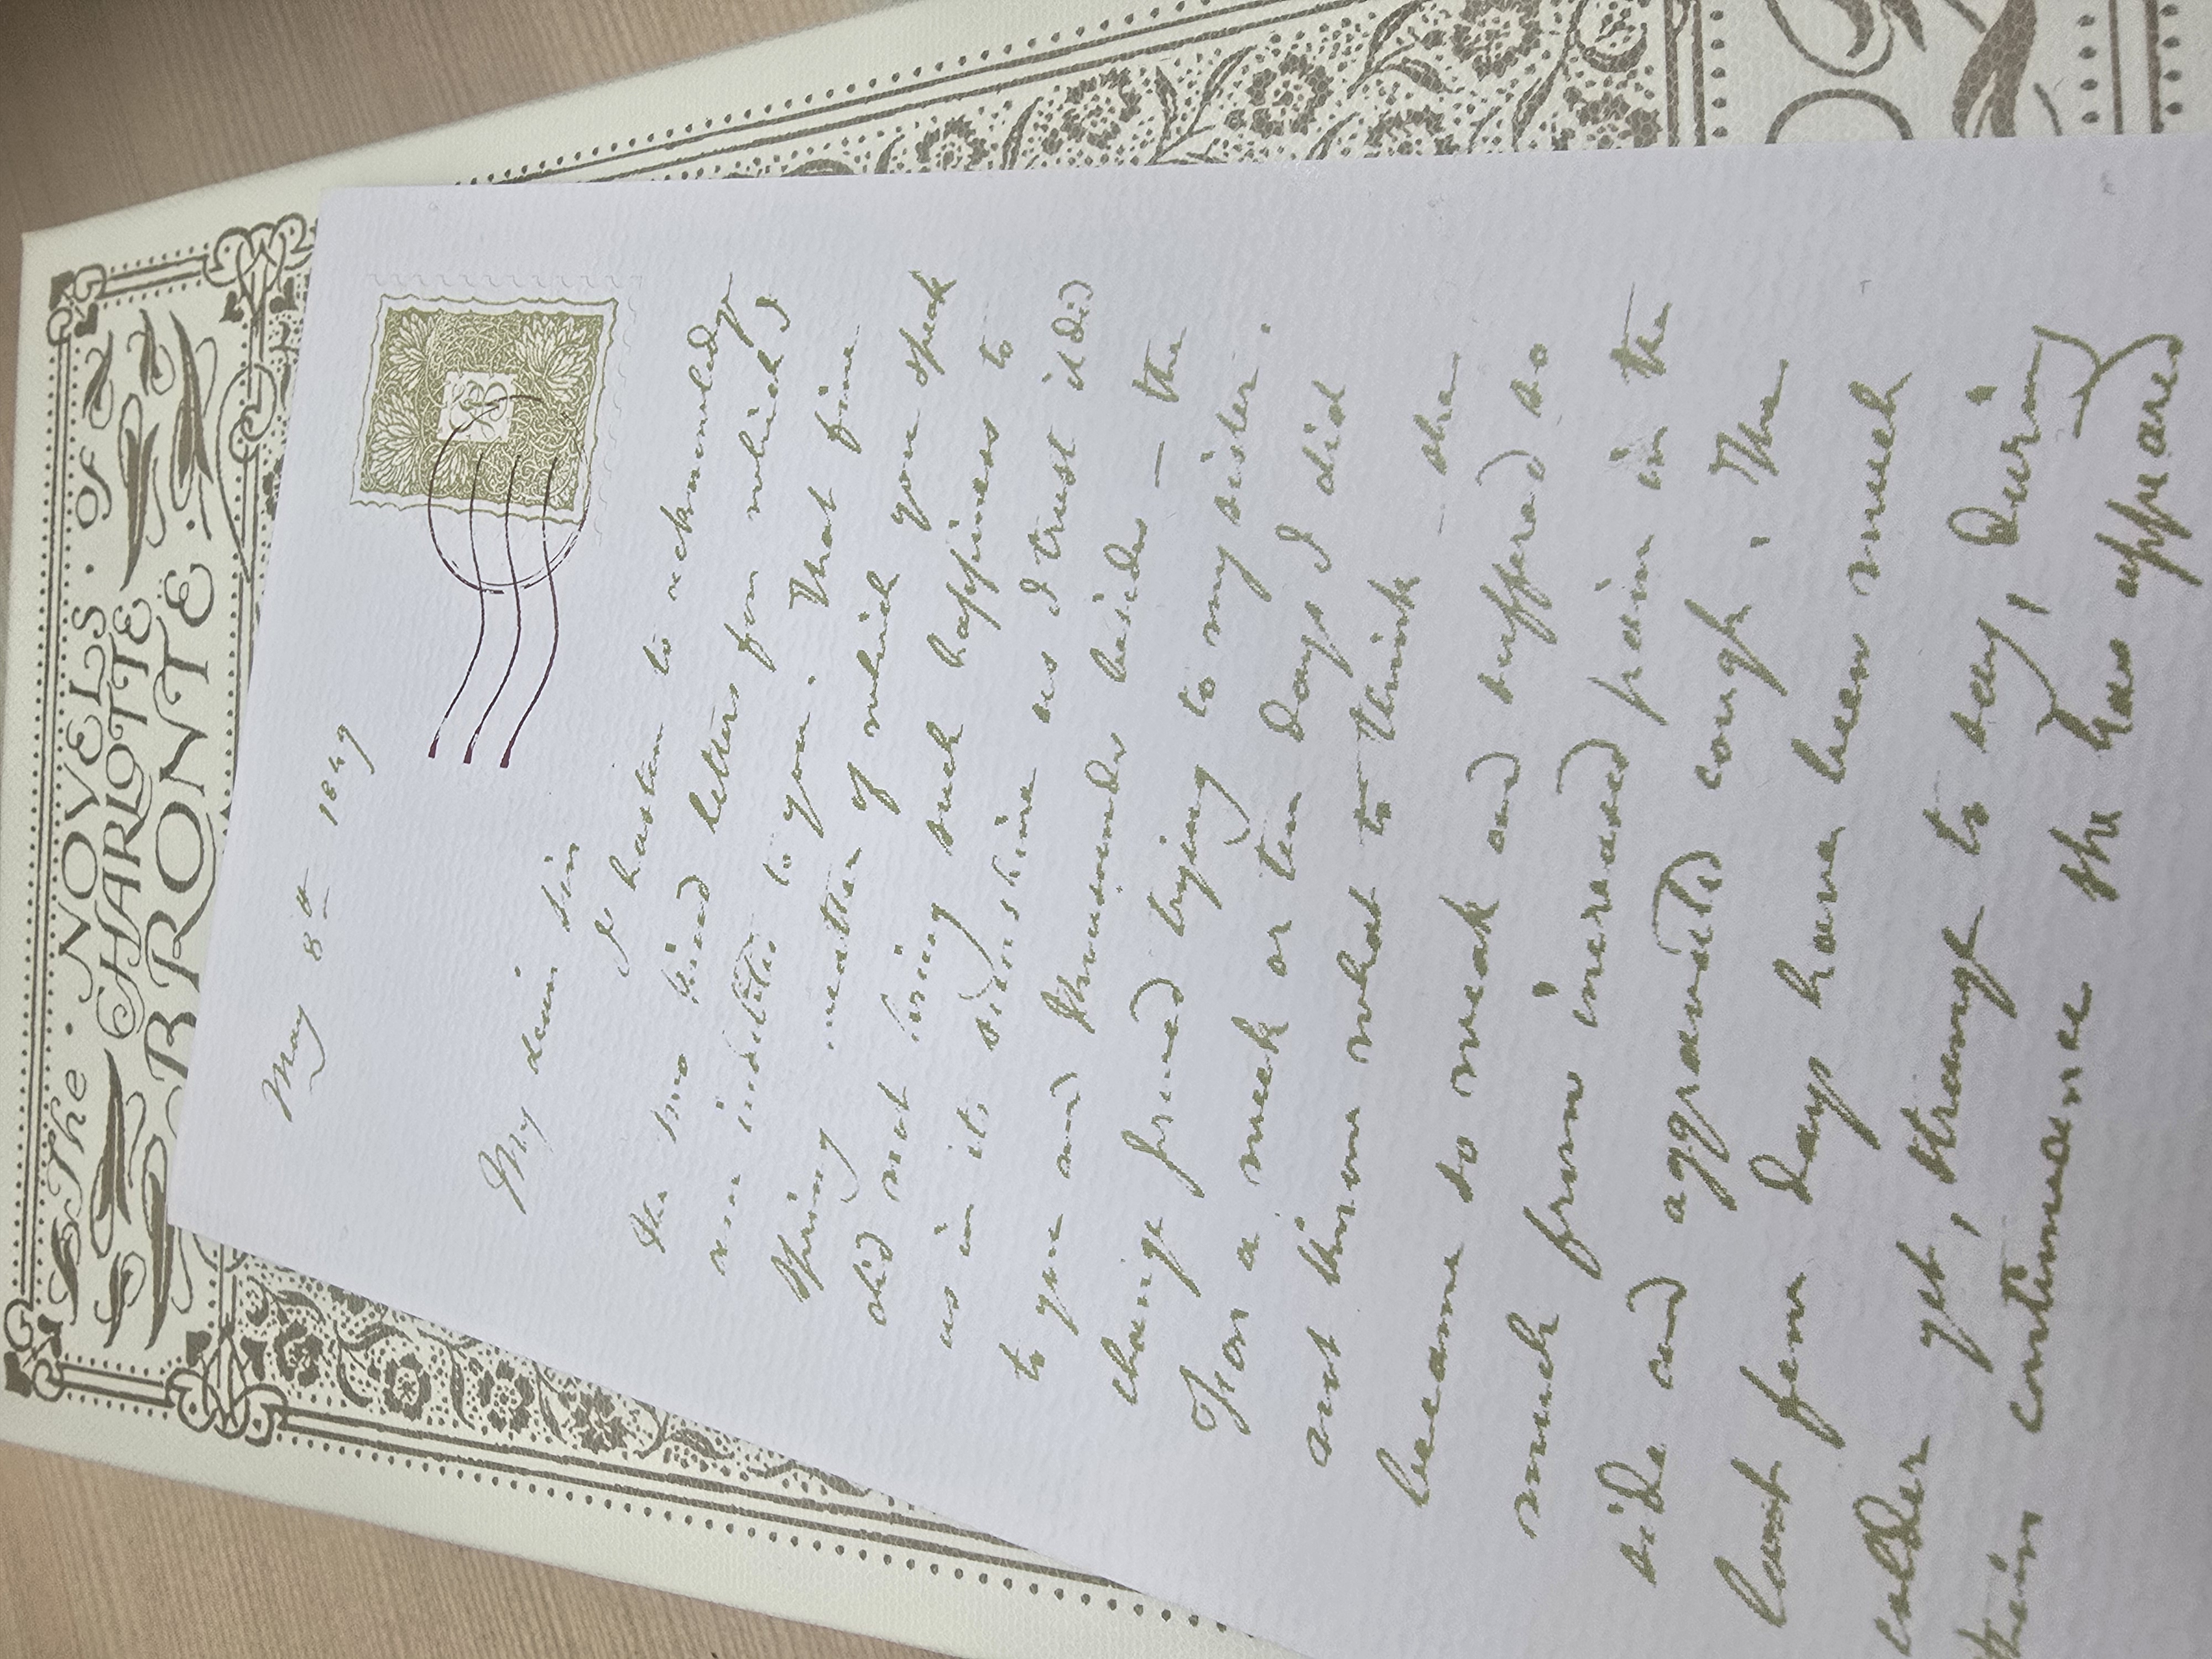 The · NOVELS · of
CHARLOTTE
BRONTE ·
May 8th 1849
My dear Sir
I hasten to acknowledge
the two kind letters for which I
am indebted to you. That fine
spring weather of which you speak
did not bring such happiness to
us in its sunshine as I trust it did
to you and thousands besides — the
change proved trying to my sister.
For a week or ten days I did
not know what to think – she
became so weak and suffered so
much from increased pain in the
side and aggravated cough. The
last few days have been much
colder yet, strange to say, during
their continuance she has appeared